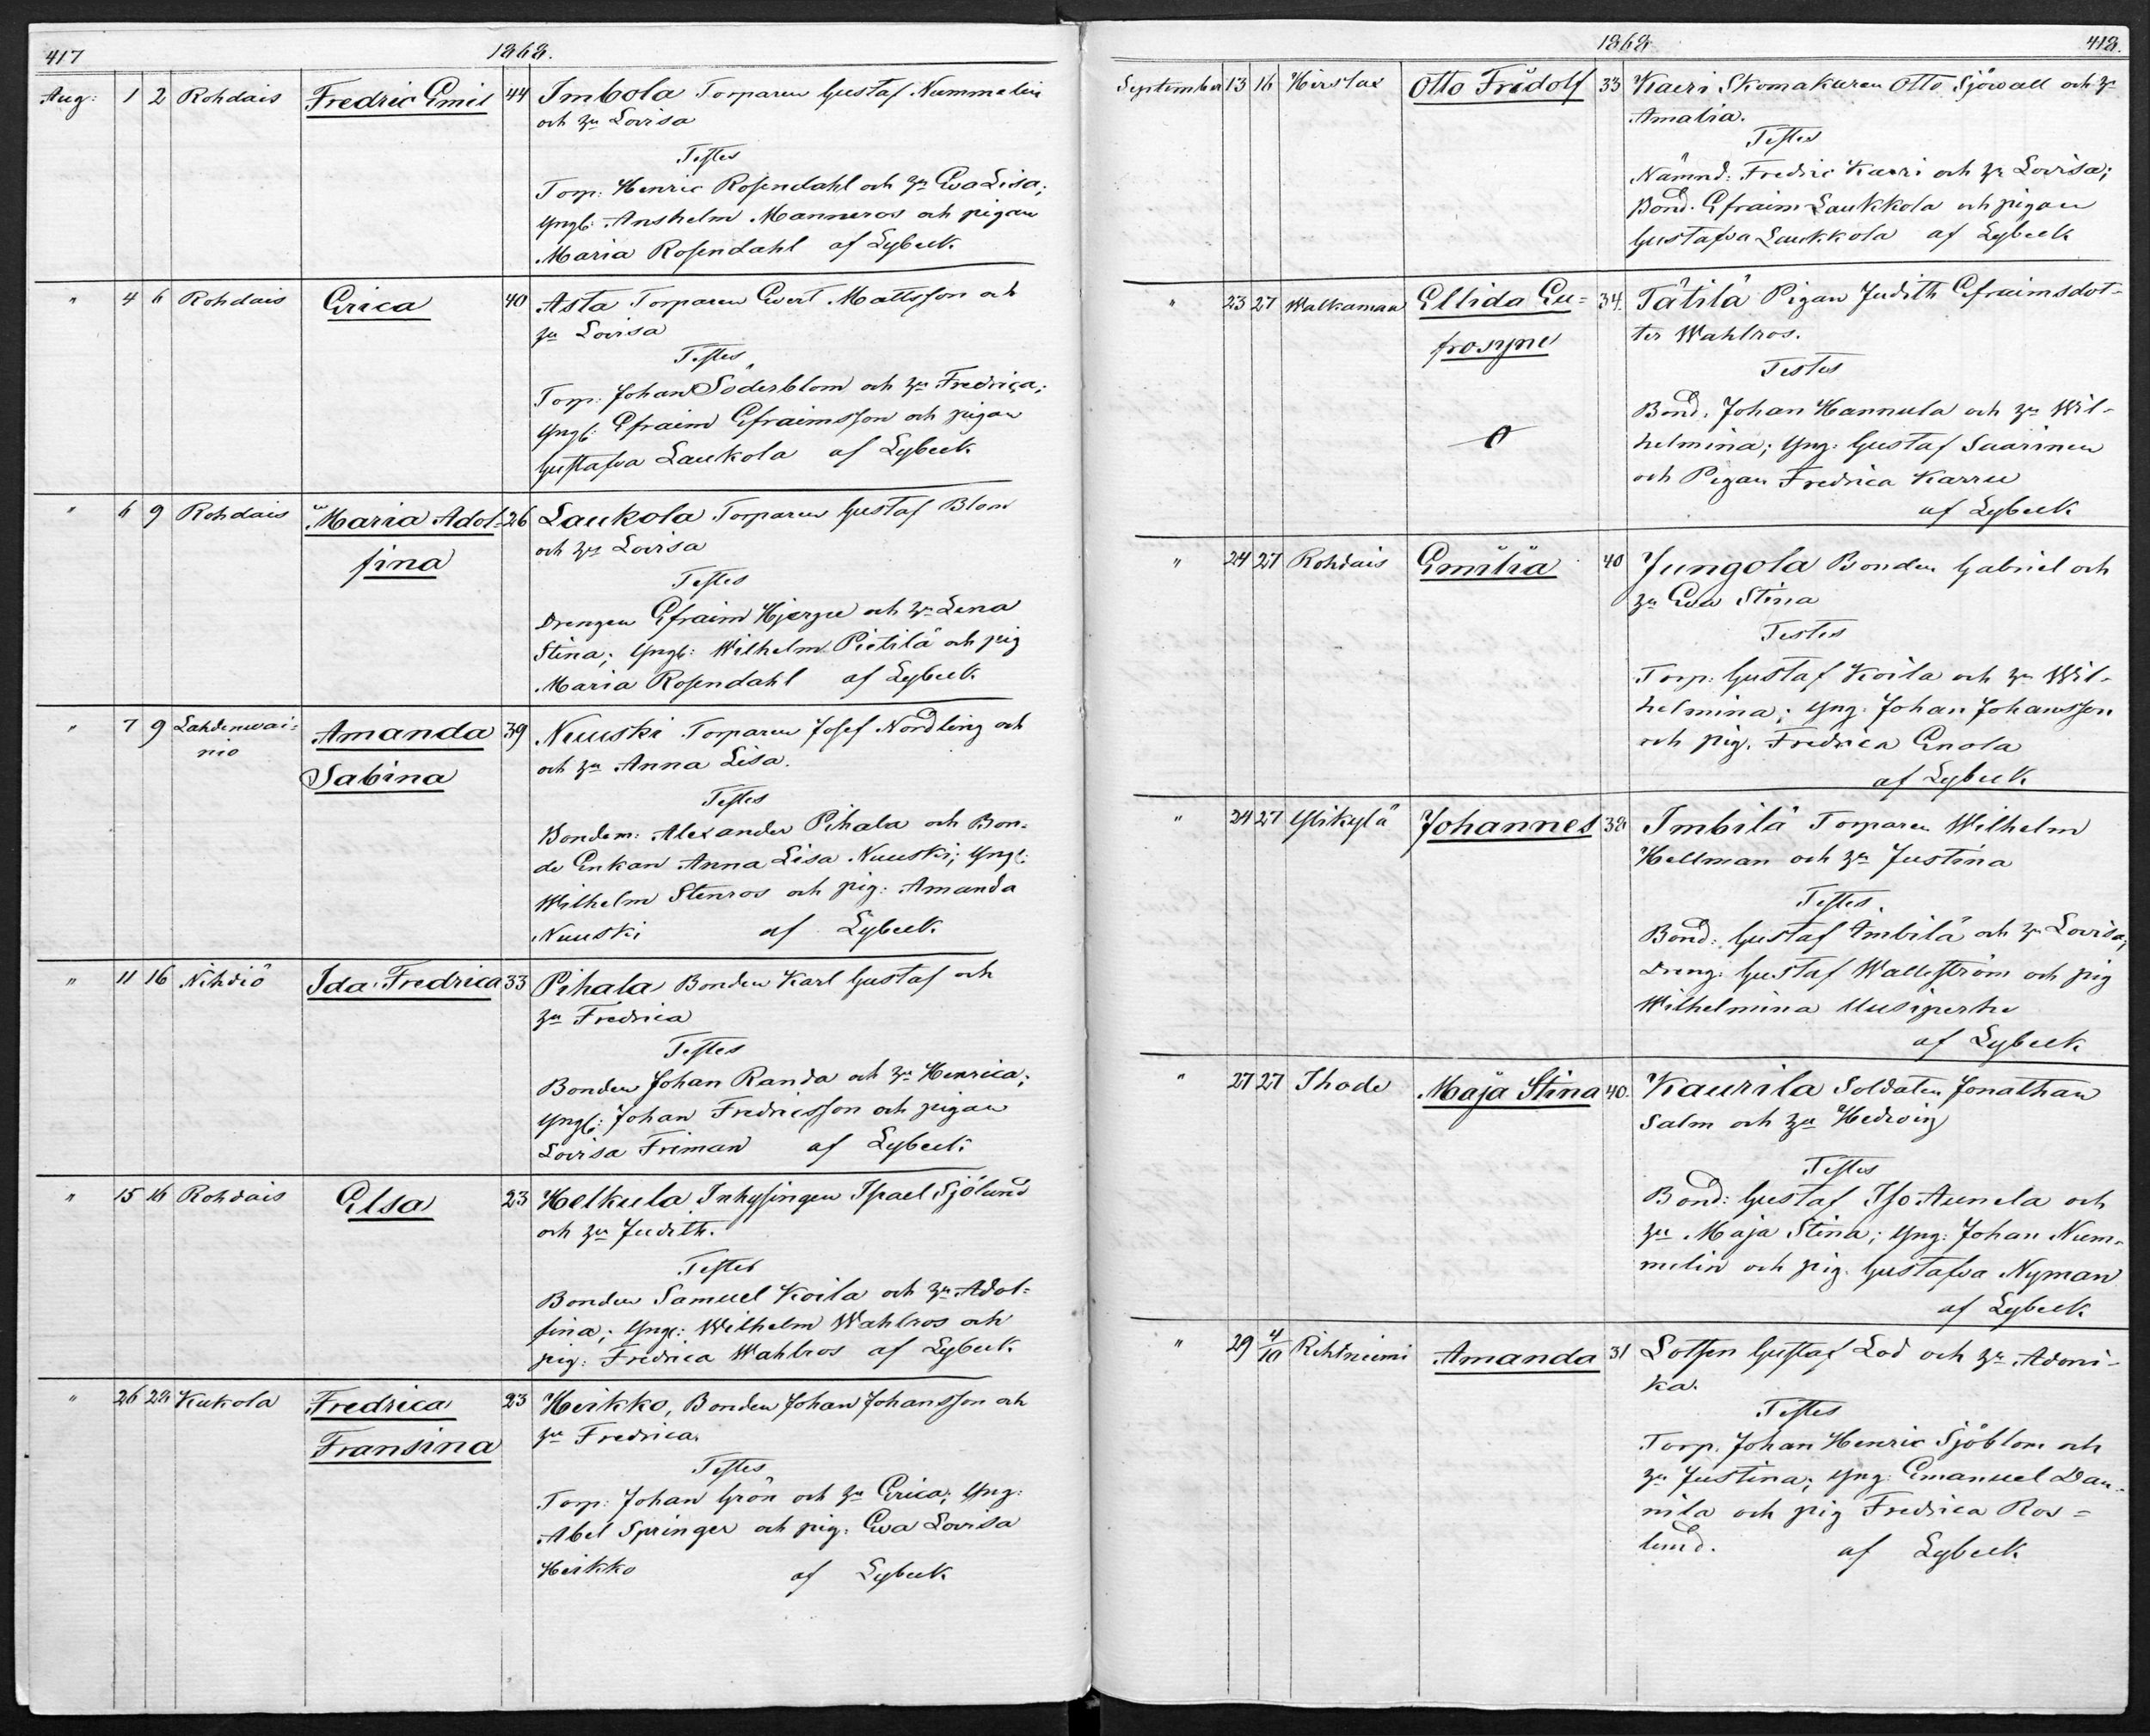 417 1868.
Aug: 1 2 Rohdais Fredric Emil 44 Imbola Torparen Gustaf Nummelin
och hu Lovisa
Testes
Torp: Henric Rosendahl och hu Eva Lisa;
Yngl: Anshelm Manneros och pigan
Maria Rosendahl af Lybeck
" 4 6 Rohdais Erica 40 Asta Torparen Evert Mattsson och
hu Lovisa
Testes
Torp: Johan Söderblom och hu Fredrica;
Yngl: Efraim Efraimsson och pigan
Gustafva Laukola af Lybeck
" 6 9 Rohdais Maria Adol- 26 Laukola Torparen Gustaf Blom
fina och hu Lovisa
Testes
Drengen Efraim Hjerpe och hu Lena
Stina; Yngl: Wilhelm Pietilä och pig
Maria Rosendahl af Lybeck
" 7 9 Lahdenwai- Amanda 39 Nuuski Torparen Josef Nordling och
nio Sabina och hu Anna Lisa.
Testes
Bondem: Alexander Pihala och Bon-
de Enkan Anna Lisa Nuuski; Yngl:
Wilhelm Stenros och pig: Amanda
Nuuski af Lybeck
" 11 16 Nihdiö Ida Fredrica 33 Pihala Bonden Karl Gustaf och
hu Fredrica
Testes
Bonden Johan Randa och hu Henrica;
Yngl: Johan Fredricsson och pigan
Lovisa Friman af Lybeck
" 15 16 Rohdais Elsa 23 Helkula Inhysingen Israel Sjölund
och hu Judith.
Testes
Bonden Samuel Koila och hu Adol-
fina; Yngl: Wilhelm Wahlros och
pig: Fredrica Wahlros af Lybeck
" 26 28 Kukola Fredrica 23 Heikko, Bonden Johan Johansson och
Fransina hu Fredrica.
Testes
Torp: Johan Grön och hu Erica; Yng:
Abel Springer och pig: Eva Lovisa
Heikko af Lybeck
1868 418.
September 13 16 Hirslax Otto Fridolf 33 Kaeri Skomakaren Otto Sjöwall och hu
Amalia.
Testes
Nämnd: Fredric Kaeri och hu Lovisa;
Bond. Efraim Laukkola och pigan
Gustafva Laukkola af Lybeck
" 23 27 Walkamaa Ellida Eu- 34. Tätilä Pigan Judith Efraimsdot-
frosyne ter Wahlros.
Testes
Bond. Johan Hannula och hu Wil-
helmina; Yng: Gustaf Saarinen
och Pigan Fredrica Karru
af Lybeck
" 24 27 Rohdais Emilia 40 Jungola Bonden Gabriel och
hu Eva Stina
Testes
Torp: Gustaf Koila och hu Wil-
helmina; Yng: Johan Johansson
och pig. Fredrica Enola
af Lybeck
" 24 27 Ylikylä Johannes 38 Imbilä Torparen Wilhelm
Hellman och hu Justina
Testes.
Bond: Gustaf Imbilä och hu Lovisa;
Dreng: Gustaf Wallström och pig
Wilhelmina Uusiperhe
af Lybeck
" 27 27 Ihode Maja Stina 40. Kaurila Soldaten Jonathan
Salm och hu Hedvig
Testes
Bond: Gustaf Iso Aunela och
hu Maja Stina; Yng: Johan Num-
melin och pig. Gustafva Nyman
af Lybeck
" 29 4/10 Rihtniemi Amanda 31 Lotsen Gustaf Lod och hu Adoni-
ka.
Testes
Torp. Johan Henric Sjöblom och
hu Justina; Yng: Emanuel Dan-
nila och pig Fredrica Ros-
lund. af Lybeck